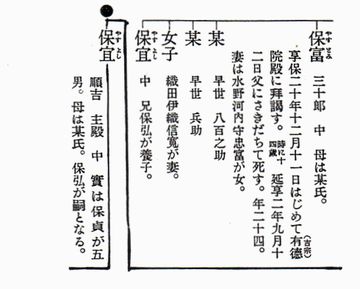 保富 やすとみ 三十郎 中 母は某氏。
享保二十年十二月十一日はじめて有徳
院殿に拝謁す。時に十四歳 延享二年九月十
二日父にさきだちて死す。年二十四。
妻は水野河内守忠富が女。
(吉宗)
某 早世 八百之助
某 早世 兵助
女子 織田伊織信寛が妻。
保宜 やすよし 中 兄保弘が養子。
保宜 やすよし 順吉 主殿 中 實は保貞が五
男。母は某氏。保弘が嗣となる。